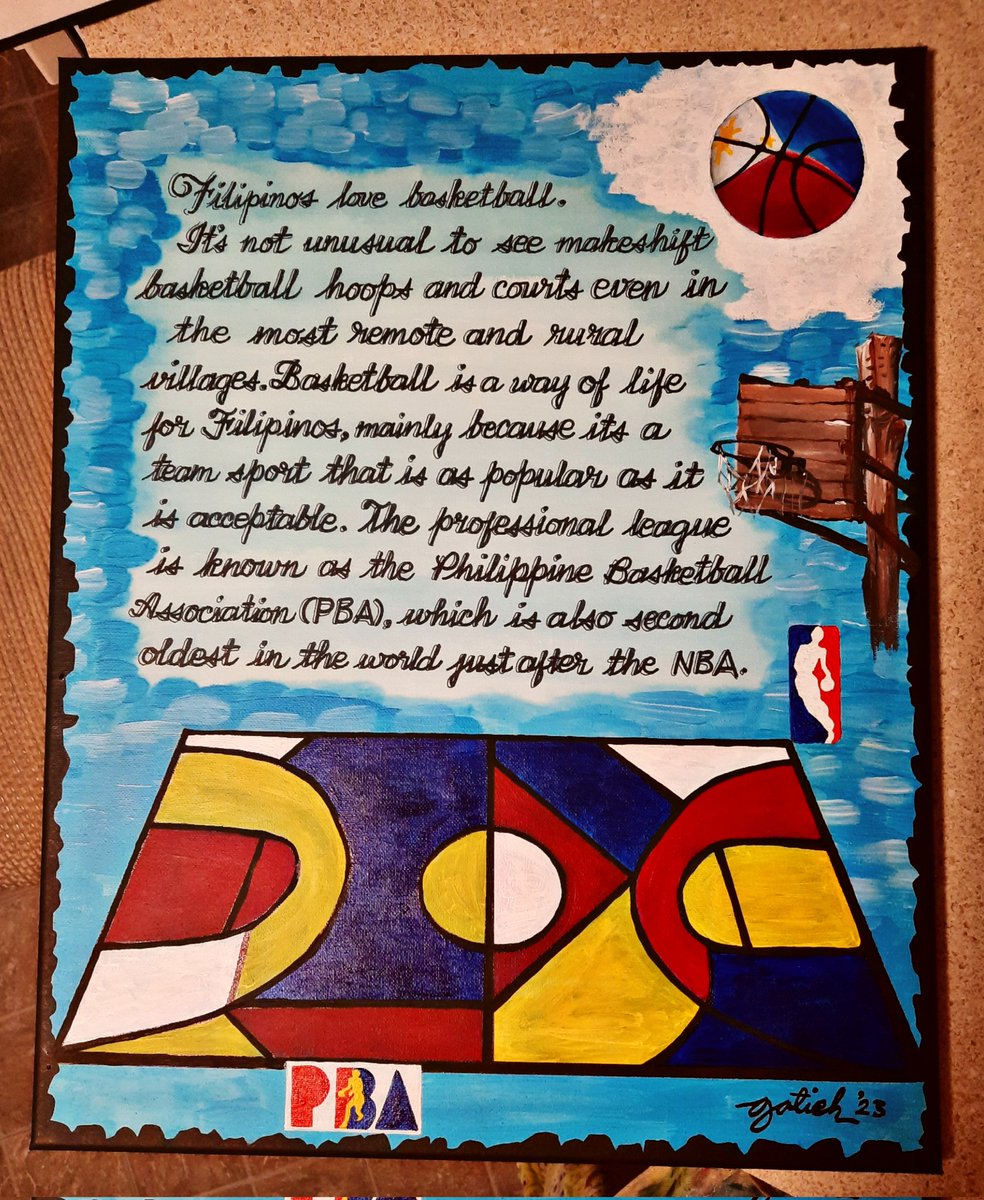 Filipinos love basketball.
It's not unusual to see makeshift
basketball hoops and courts even in
the most remote and rural
villages. Basketball is a way of life
for Filipinos, mainly because its a
team sport that is as popular as it
is acceptable. The professional league
is known as the Philippine Basketball
Association (PBA), which is also second
oldest in the world just after the NBA.
PBA